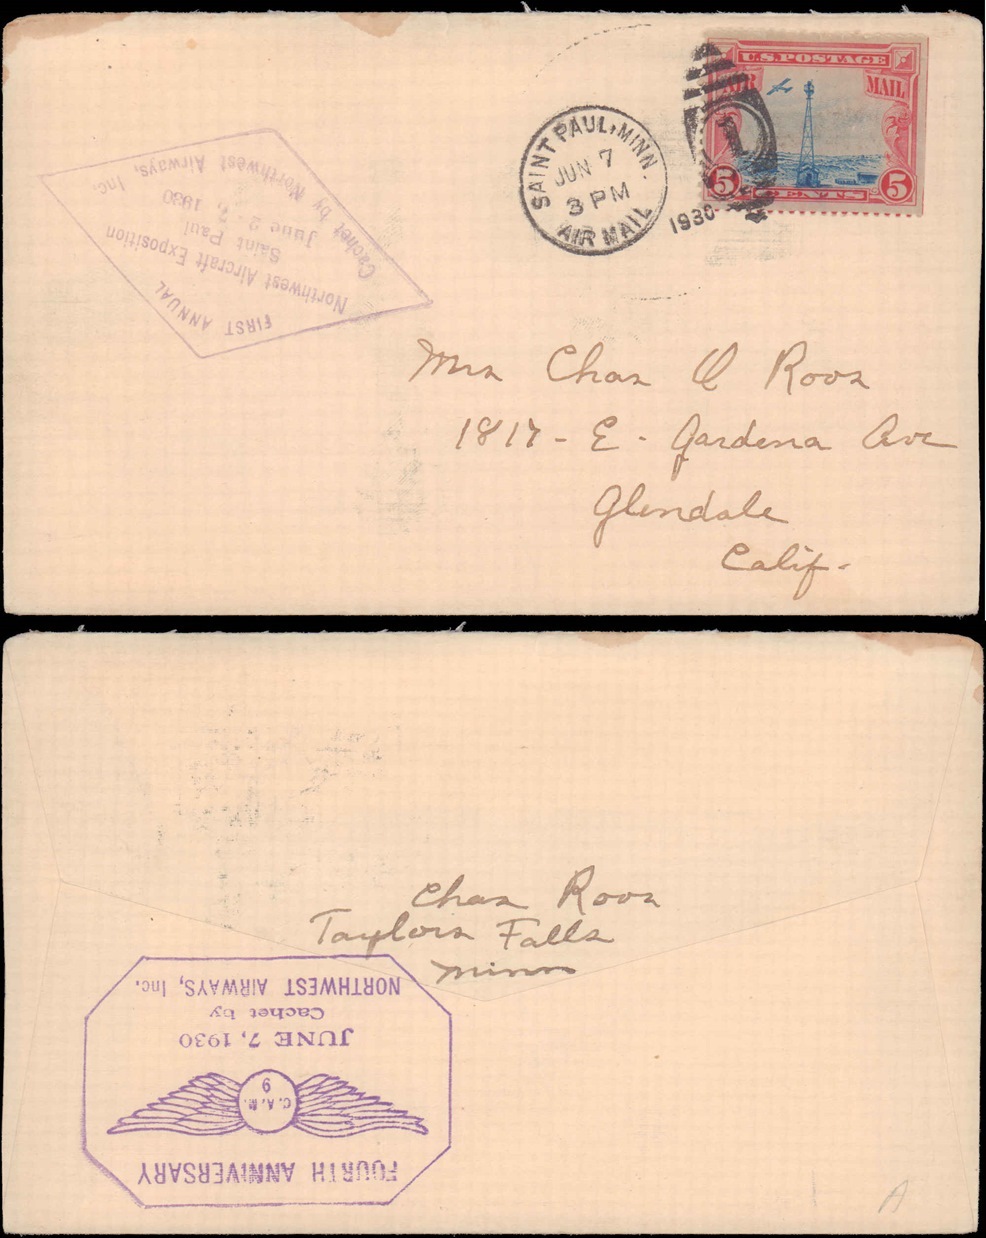 FIRST ANNUAL
Northwest Aircraft Exposition
Saint Paul
June 2 - 7, 1930
Cachet by Northwest Airways, Inc.
SAINT PAUL, MINN.
JUN 7
3 PM
AIR MAIL
1930
1
U.S. POSTAGE
AIR MAIL
5 CENTS 5
Mrs Chas O Roos
1817 - E - Gardena Ave
Glendale
Calif -
Chas Roos
Taylors Falls
Minn
FOURTH ANNIVERSARY
C.A.M.
9
JUNE 7, 1930
Cachet by
NORTHWEST AIRWAYS, Inc.
A